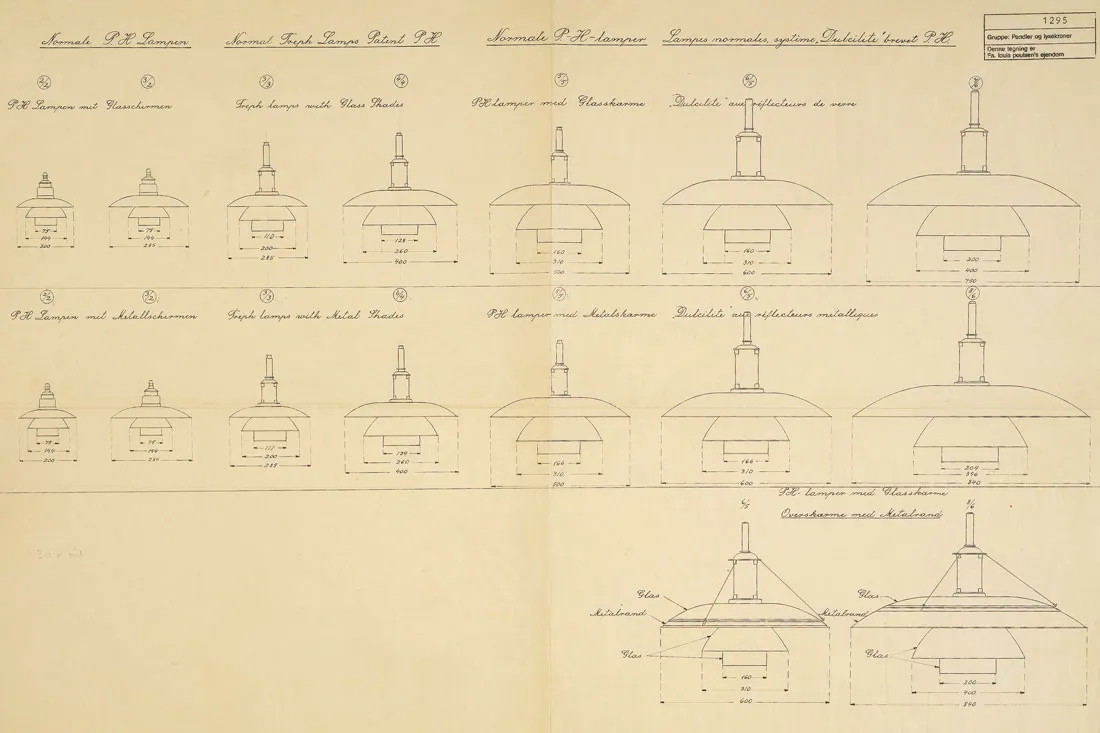 1295
Gruppe: Pendler og lysekroner
Denne tegning er
Fa. louis poulsen's ejendom
Normale P.H Lampen
Normal Treph Lamps Patent P.H
Normale P.H-lamper
Lampes normales, système, Dulcilité" brevet P.H.
2/2 3/2 3/3 4/4 5/5 6/5
P.H Lampen mit Glasschirmen
Treph lamps with Glass Shades
PH lamper med Glasskærme
„Dulcilité" aux réflecteurs de verre
75 75 110 128 160 160 200
144 144 200 260 310 310 400
200 285 285 400 500 600 750
2/2 3/2 3/3 4/4 5/5 6/5 8/6
PH Lampen mit Metallschirmen
Treph lamps with Metal Shades
PH lamper med Metalskærme
Dulcilité aux réflecteurs métalliques
75 75 111 134 166 166 209
144 144 200 260 310 310 396
200 285 285 400 500 600 840
PH-lamper med Glasskærme
Overskærme med Metalrand
6/5 8/6
Glas Glas
Metalrand Metalrand
Glas Glas
160 200
310 400
600 840